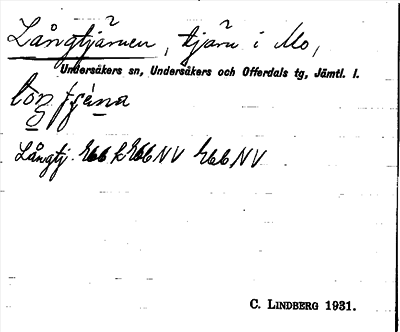 Långtjärnen, tjärn i Mo,
Undersåkers sn, Undersåkers och Offerdals tg, Jämtl. l.
Långtj. NV NV
C. LINDBERG 1931.